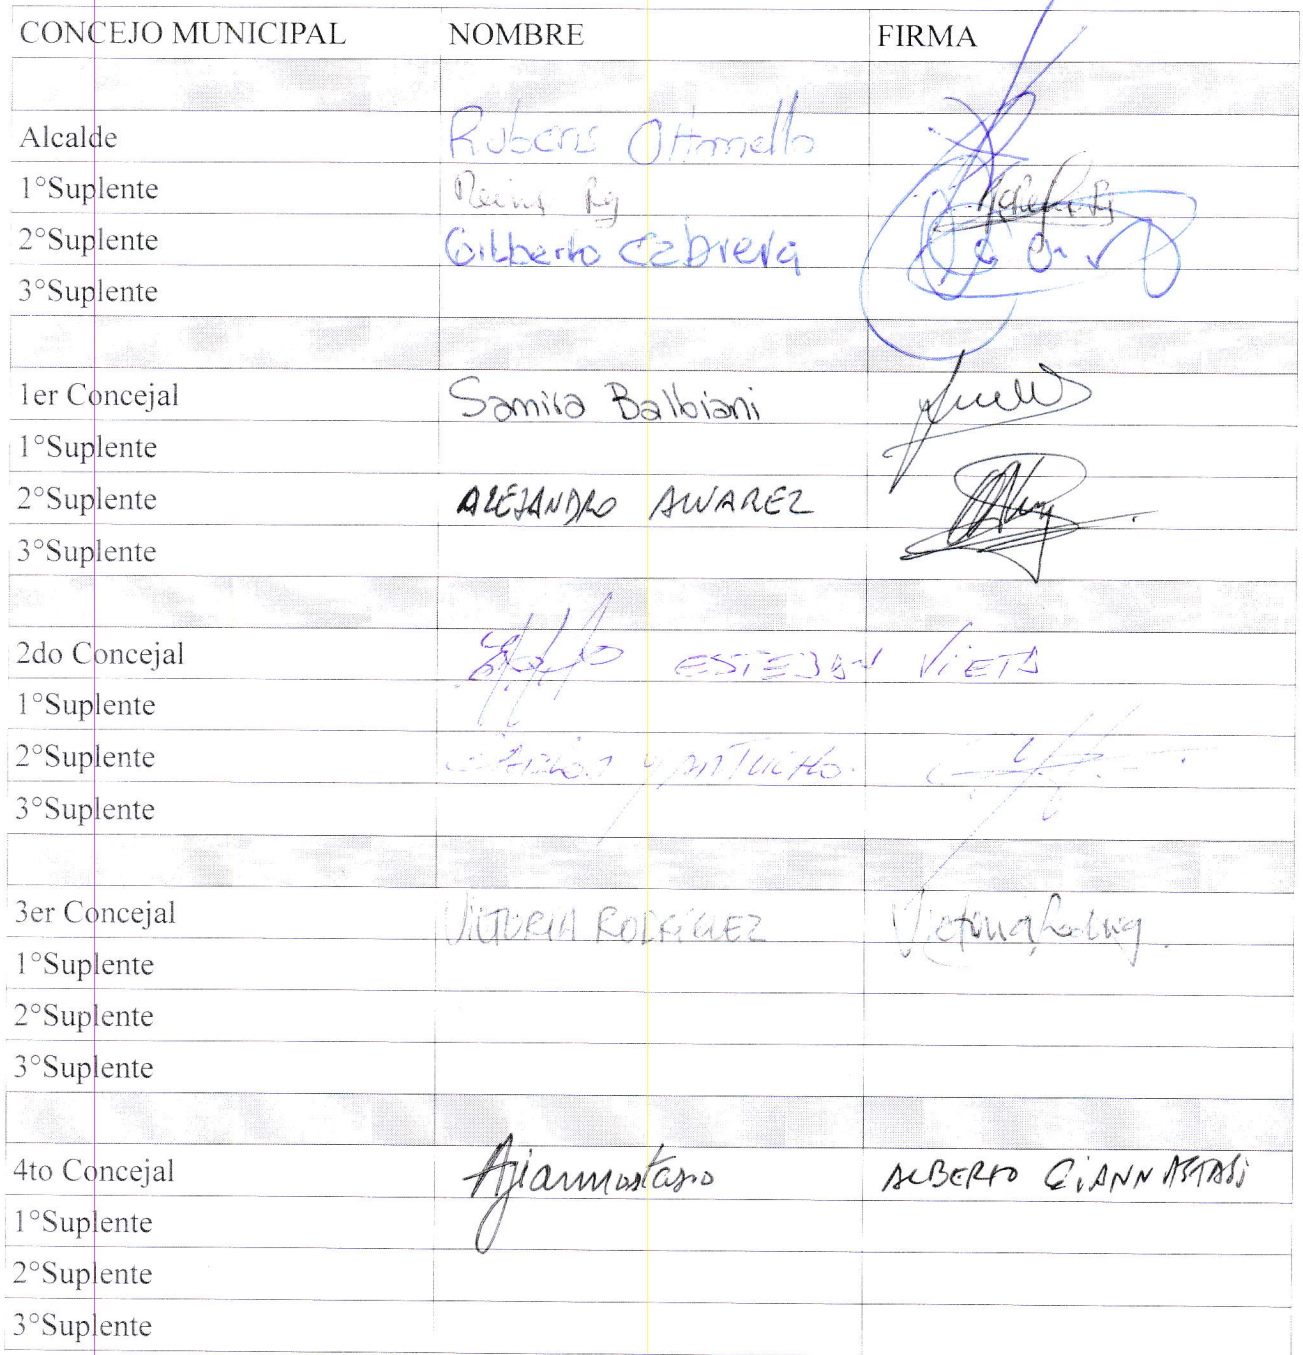 CONCEJO MUNICIPAL NOMBRE FIRMA
Alcalde Rubens Ottonello
1°Suplente
2°Suplente Gilberto Cabrera
3°Suplente
1er Concejal Samira Balbiani
1°Suplente
2°Suplente ALEJANDRO ALVAREZ
3°Suplente
2do Concejal ESTEBAN VIETA
1°Suplente
2°Suplente
3°Suplente
3er Concejal VICTORIA RODRÍGUEZ
1°Suplente
2°Suplente
3°Suplente
4to Concejal ALBERTO GIANNASTASI
1°Suplente
2°Suplente
3°Suplente